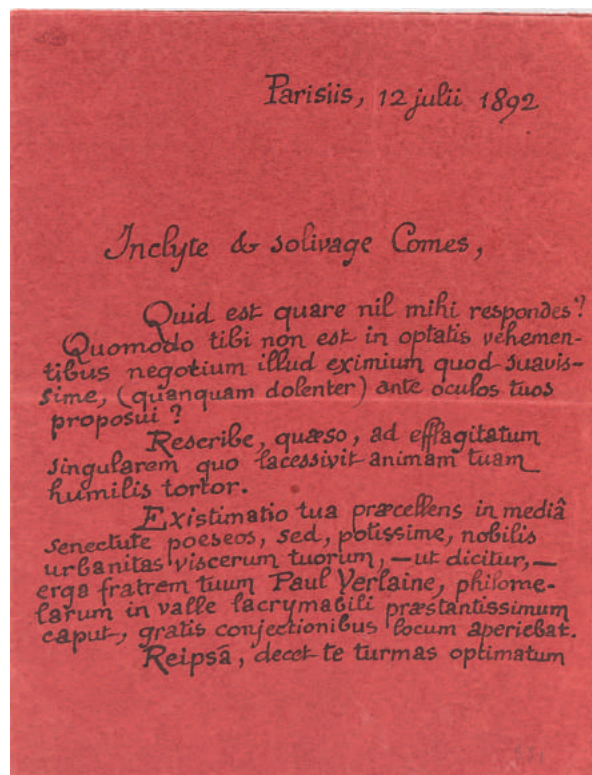 Parisiis, 12 julii 1892
Inclyte & solivage Comes,
Quid est quare nil mihi respondes?
Quomodo tibi non est in optatis vehemen-
tibus negotium illud eximium quod suavis-
sime, (quanquam dolenter) ante oculos tuos
proposui?
Rescribe, quæso, ad efflagitatum
singularem quo lacessivit animam tuam
humilis tortor.
Existimatio tua præcellens in mediâ
senectute poeseos, sed, potissime, nobilis
urbanitas viscerum tuorum, — ut dicitur, —
erga fratrem tuum Paul Verlaine, philome-
larum in valle lacrymabili præstantissimum
caput, gratis conjectionibus locum aperiebat.
Reipsâ, decet te turmas optimatum